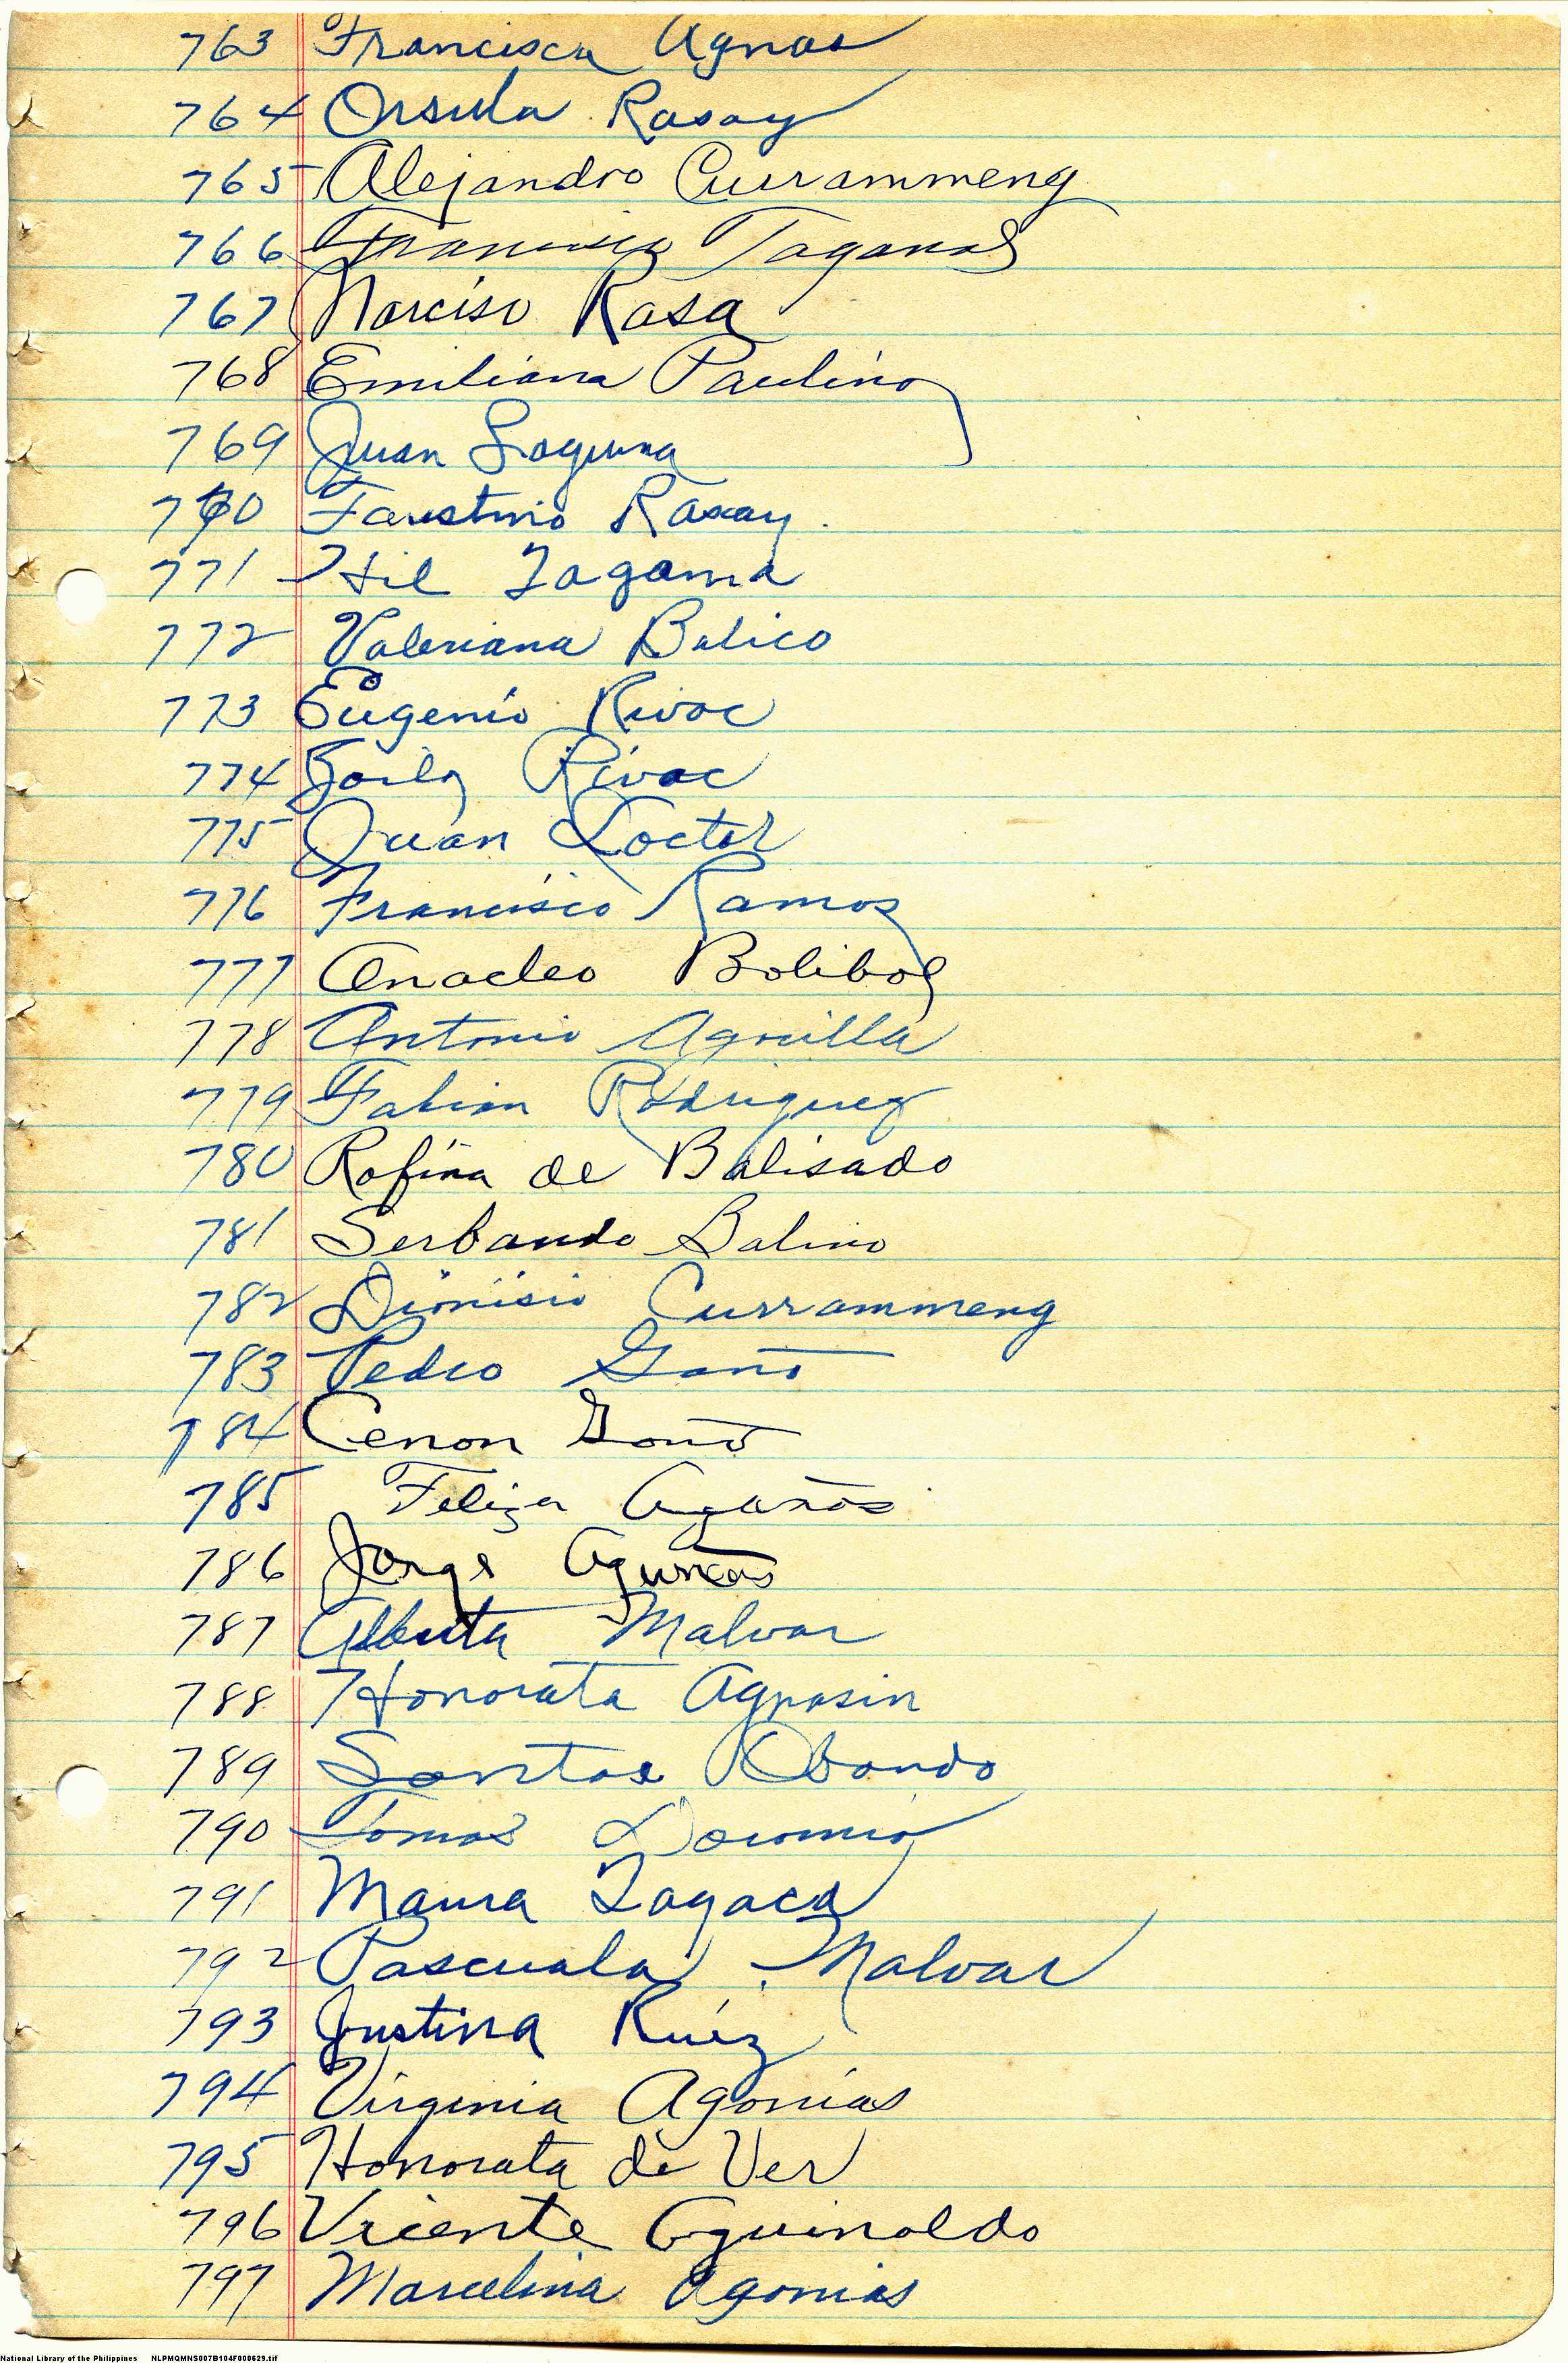 763 Francisca Agnas
764 Orsula Rasay
765 Alejandro Currammeng
766 Francisca Taganas
767 Narciso Rasa
768 Emiliana Paulino
769 Juan Laguna
770 Faustino Rasay.
771 Hil Tagama
772 Valeriana Bulico
773 Eugenio Rivac
774 Zoila Rivac
775 Juan Loctor
776 Francisco Ramos
777 Anacleo Bolibol
778 Antonio Aguilla
779 Fabian Rodriguez
780 Rofina de Balisado
781 Serbando Balino
782 Dionisio Currammeng
783 Pedro Gaño
784 Cenon Gaño
785 Feliza Aguños
786 Jorge
787 Alberta Malvar
788 Honorata Agpasin
789 Santos Obando
790 Tomas
791 Maura Lagaca
792 Pascuala Malvar
793 Justina Ruiz
794 Virginia Agonias
795 Honorata de Ver
796 Vicente Aguinaldo
797 Marcelina Agonias
National Library of the Philippines NLPMQMNS007B104F000629.tif